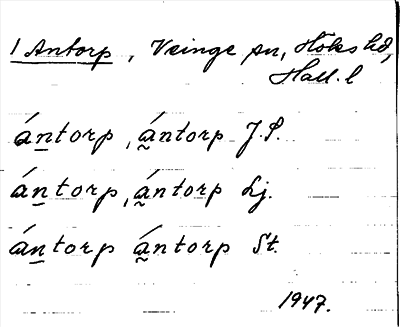 1 Antorp, Veinge sn, Höks hd,
Hall. l
ántorp, ántorp J.P.
ántorp, ántorp Lj.
ántorp ántorp St.
1947.